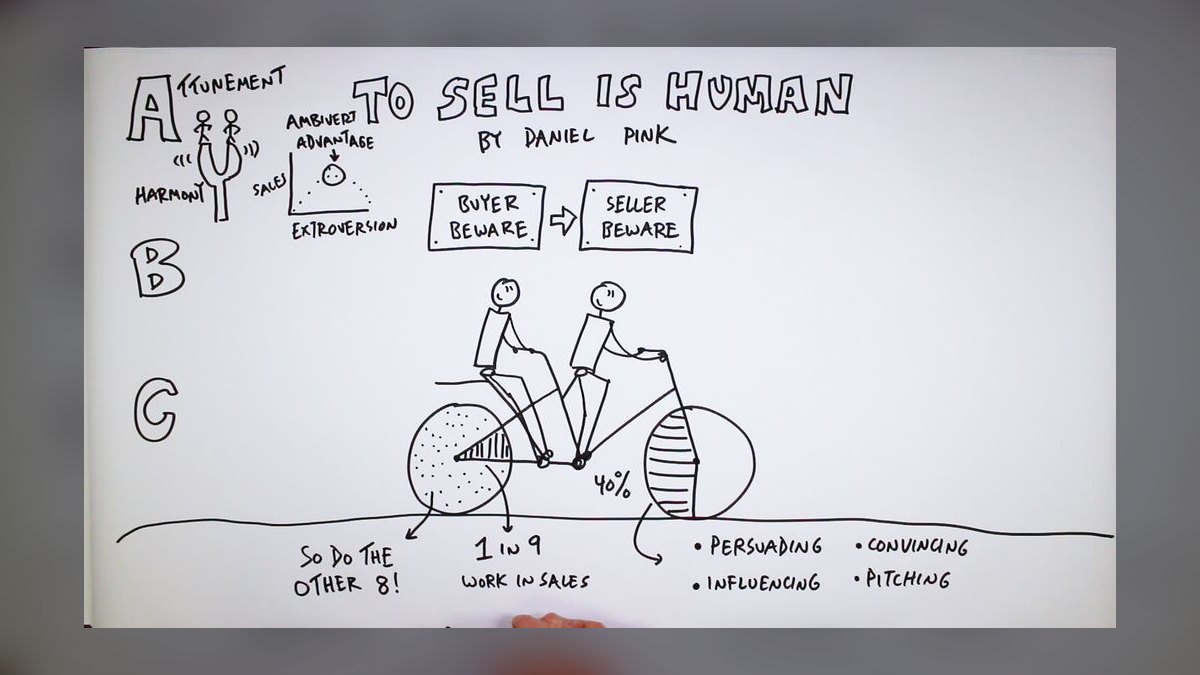 ATTUNEMENT
TO SELL IS HUMAN
BY DANIEL PINK
AMBIVERT
ADVANTAGE
HARMONY
SALES
EXTROVERSION
BUYER
BEWARE
SELLER
BEWARE
B
C
40%
SO DO THE
OTHER 8!
1 IN 9
WORK IN SALES
• PERSUADING
• CONVINCING
• INFLUENCING
• PITCHING